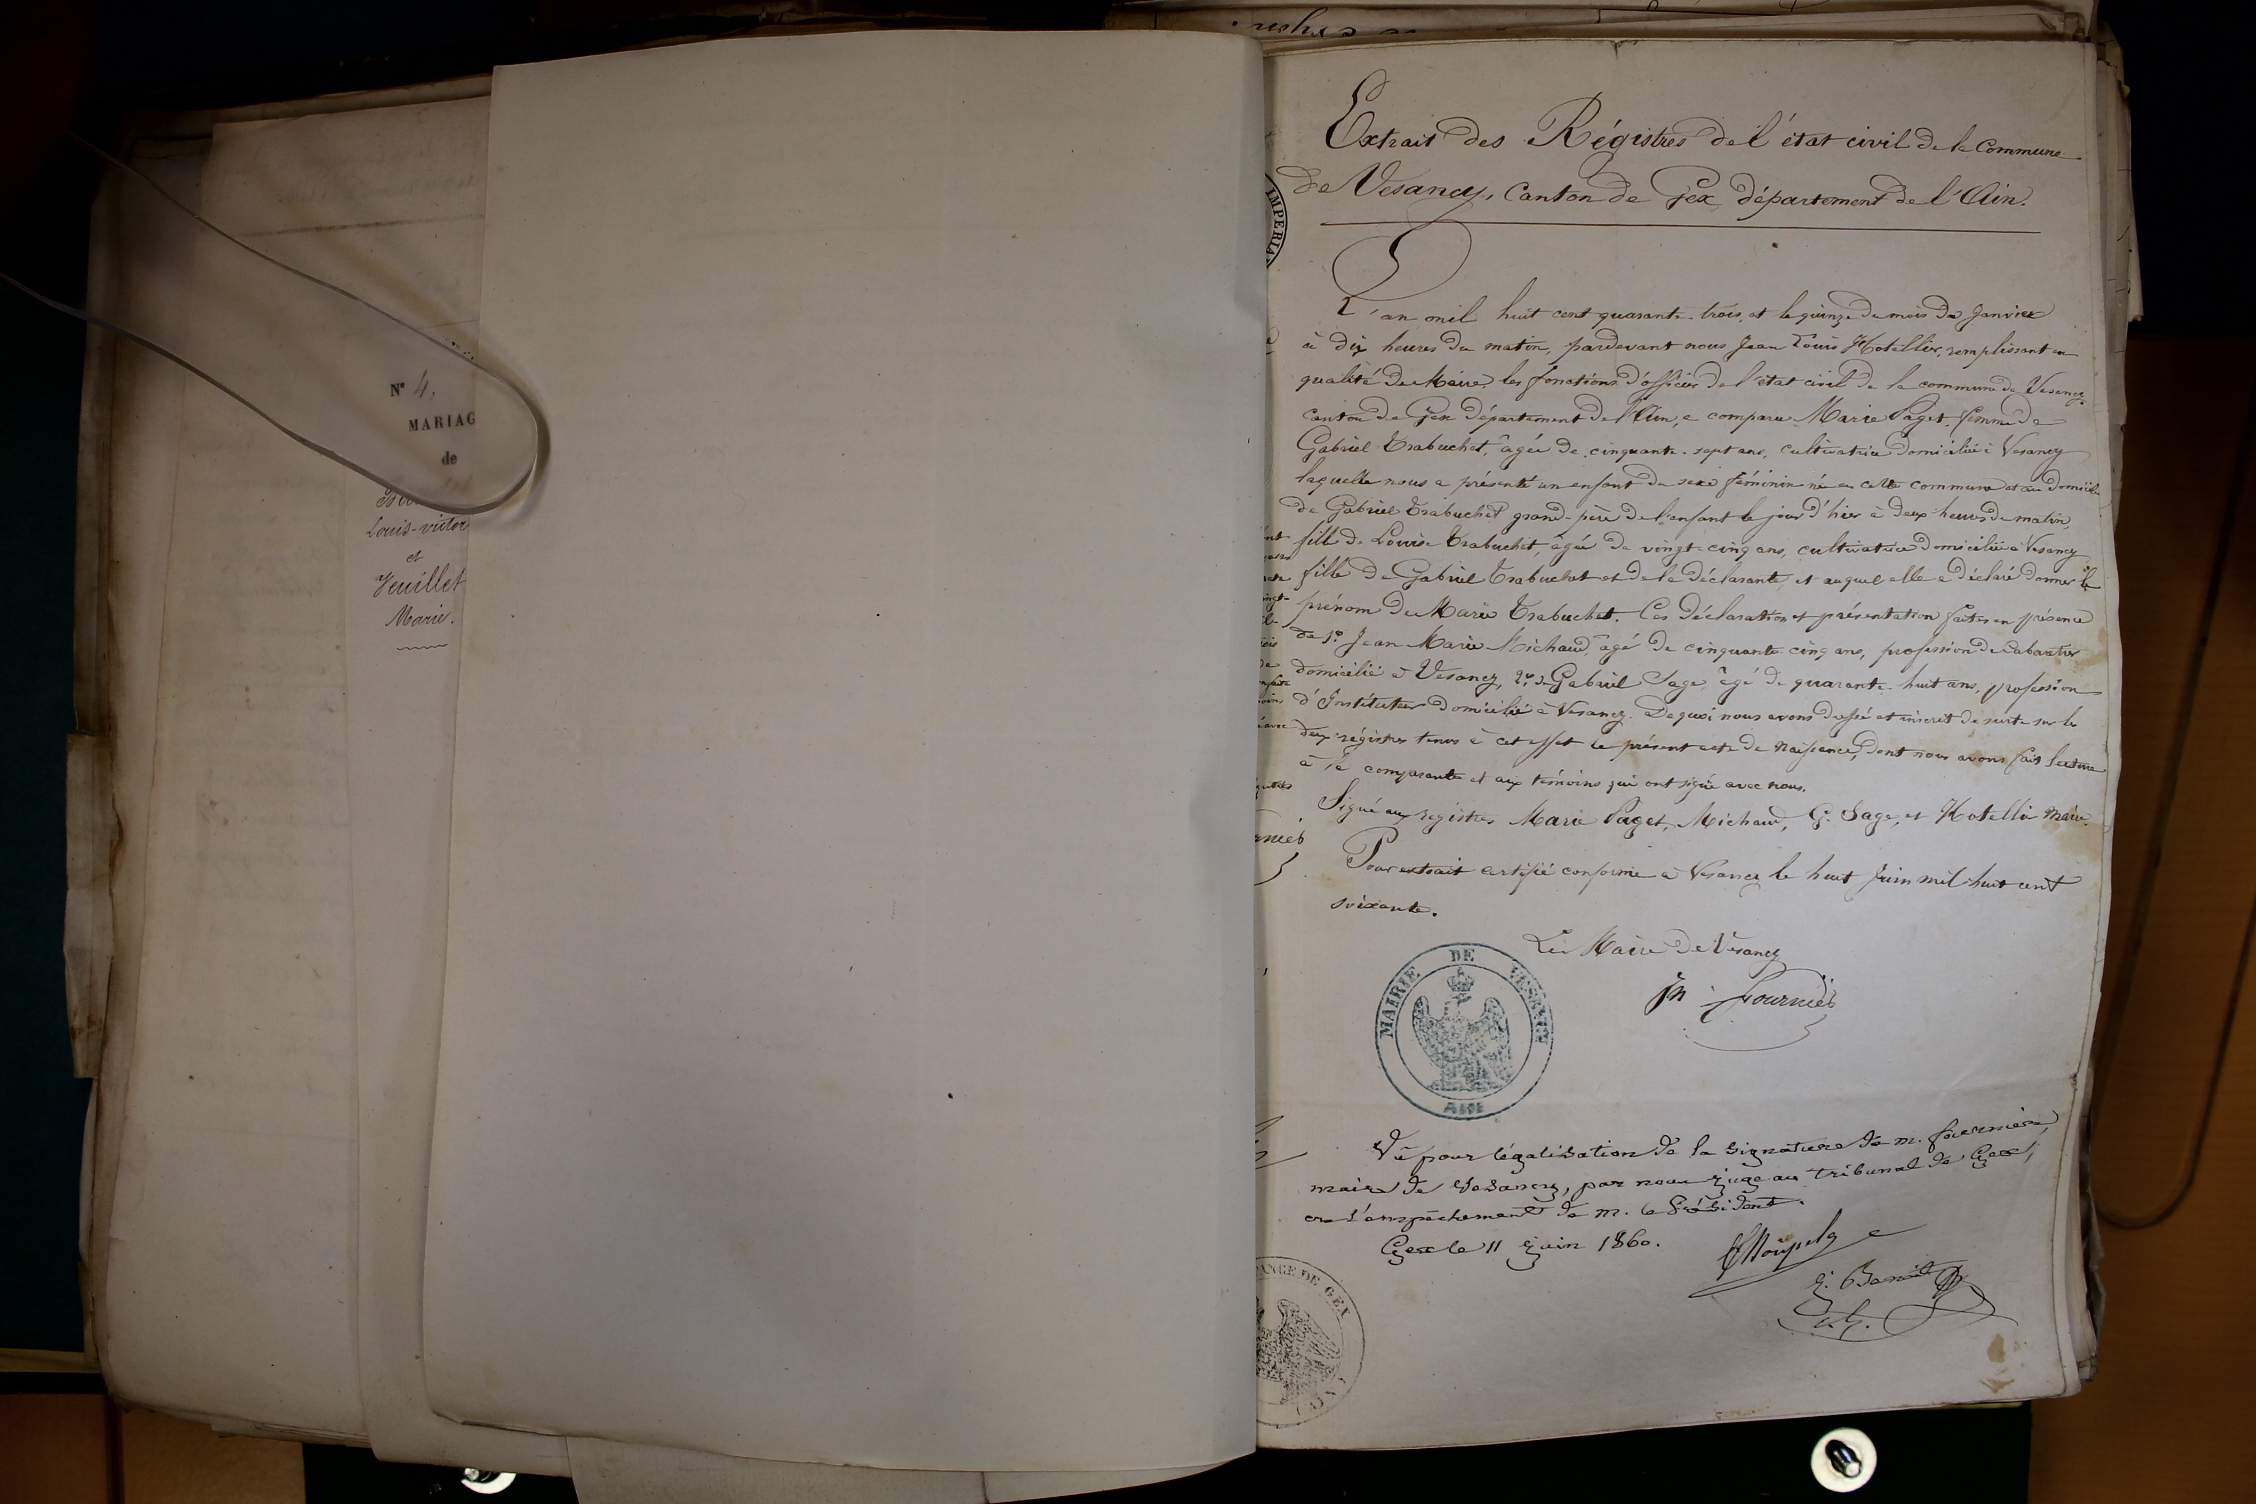 N° 4.
MARIAG
de
Louis-victor
et
Veuillet
Marie.
Extrait des Régistres de l'état civil de la Commune
de Vesancy, Canton de Gex, département de l'Ain.
IMPERIA
L'an mil huit cent quarante-trois et le quinze du mois de Janvier
à dix heures du matin, pardevant nous Jean Louis Hotellier, remplissant en
qualité de Maire les fonctions d'officier de l'état civil de la commune de Vesancy
canton de Gex département de l'Ain, a comparu Marie Paget femme de
Gabriel Trabuchet, âgée de cinquante-sept ans, cultivatrice domiciliée à Vesancy
laquelle nous a présenté un enfant du sexe féminin né en cette commune et au domicile
de Gabriel Trabuchet grand-père de l'enfant le jour d'hier à deux heures du matin,
fille de Louise Trabuchet, âgée de vingt-cinq ans, cultivatrice domiciliée à Vesancy
fille de Gabriel Trabuchet et de la déclarante, et auquel elle a déclaré donner le
prénom de Marie Trabuchet. Ces déclaration et présentation faites en présence
de 1° Jean Marie Michaud, âgé de cinquante cinq ans, profession de cabaretier
domicilié à Vesancy, 2° de Gabriel Sage, âgé de quarante-huit ans, profession
d'Instituteur domicilié à Vesancy. De quoi nous avons dressé et inscrit de suite sur les
deux régistres tenus à cet effet le présent acte de naissance, dont nous avons fait lecture
à la comparante et aux témoins qui ont signé avec nous.
Signé aux régistres Marie Paget, Michaud, G. Sage, et Hotellier Maire.
Pour extrait certifié conforme à Vesancy le huit Juin mil huit cent
soixante.
Le Maire de Vesancy
Jn Fournier
MAIRIE DE VESANCY
AIN
Vu pour légalisation de la signature de m. fournier,
maire de Vesancy, par nous juge au tribunal de Gex,
en l'empêchement de m. le Président.
Gex le 11 juin 1860.
ANCE DE GEX